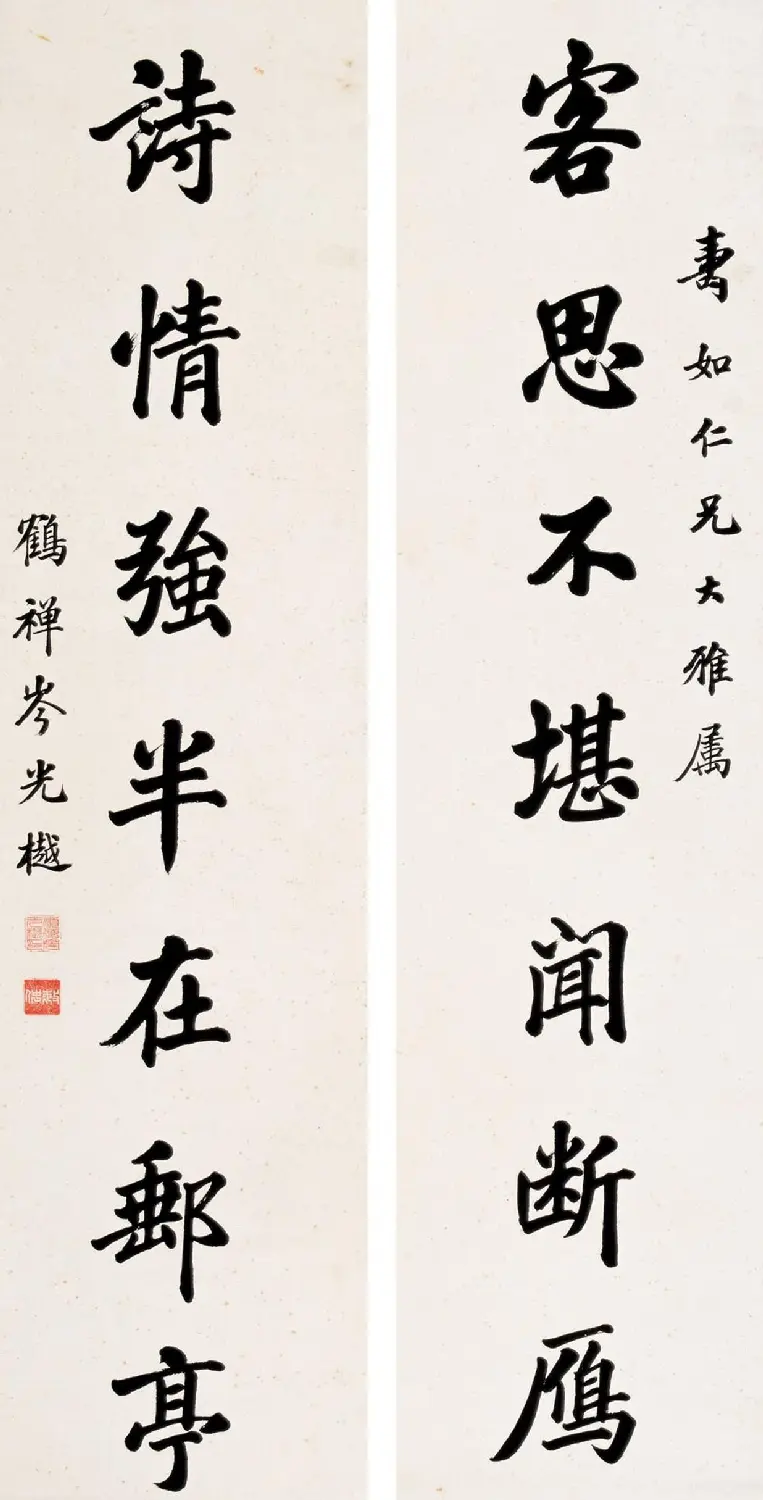 壽如仁兄大雅属
客思不堪闻断鴈
詩情強半在郵亭
鶴禅岑光樾